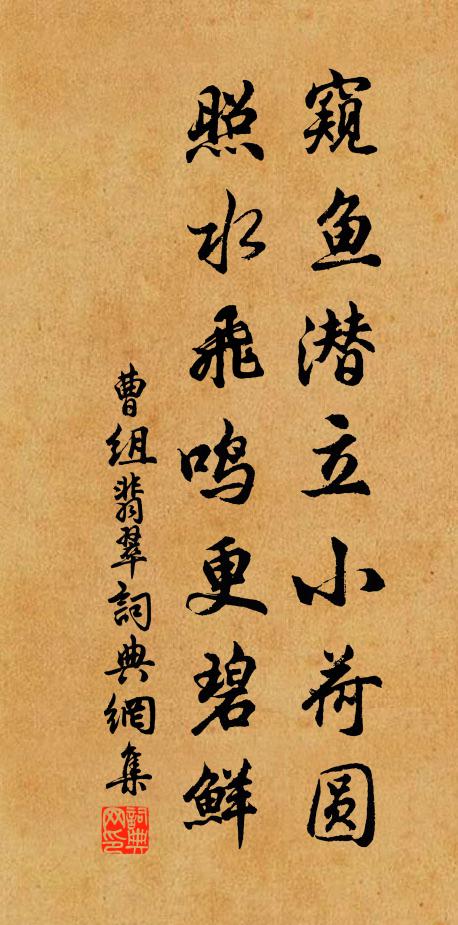 窥鱼潜立小荷圆
照水飞鸣更碧鲜
曹组翡翠詞典網集
詞典网印